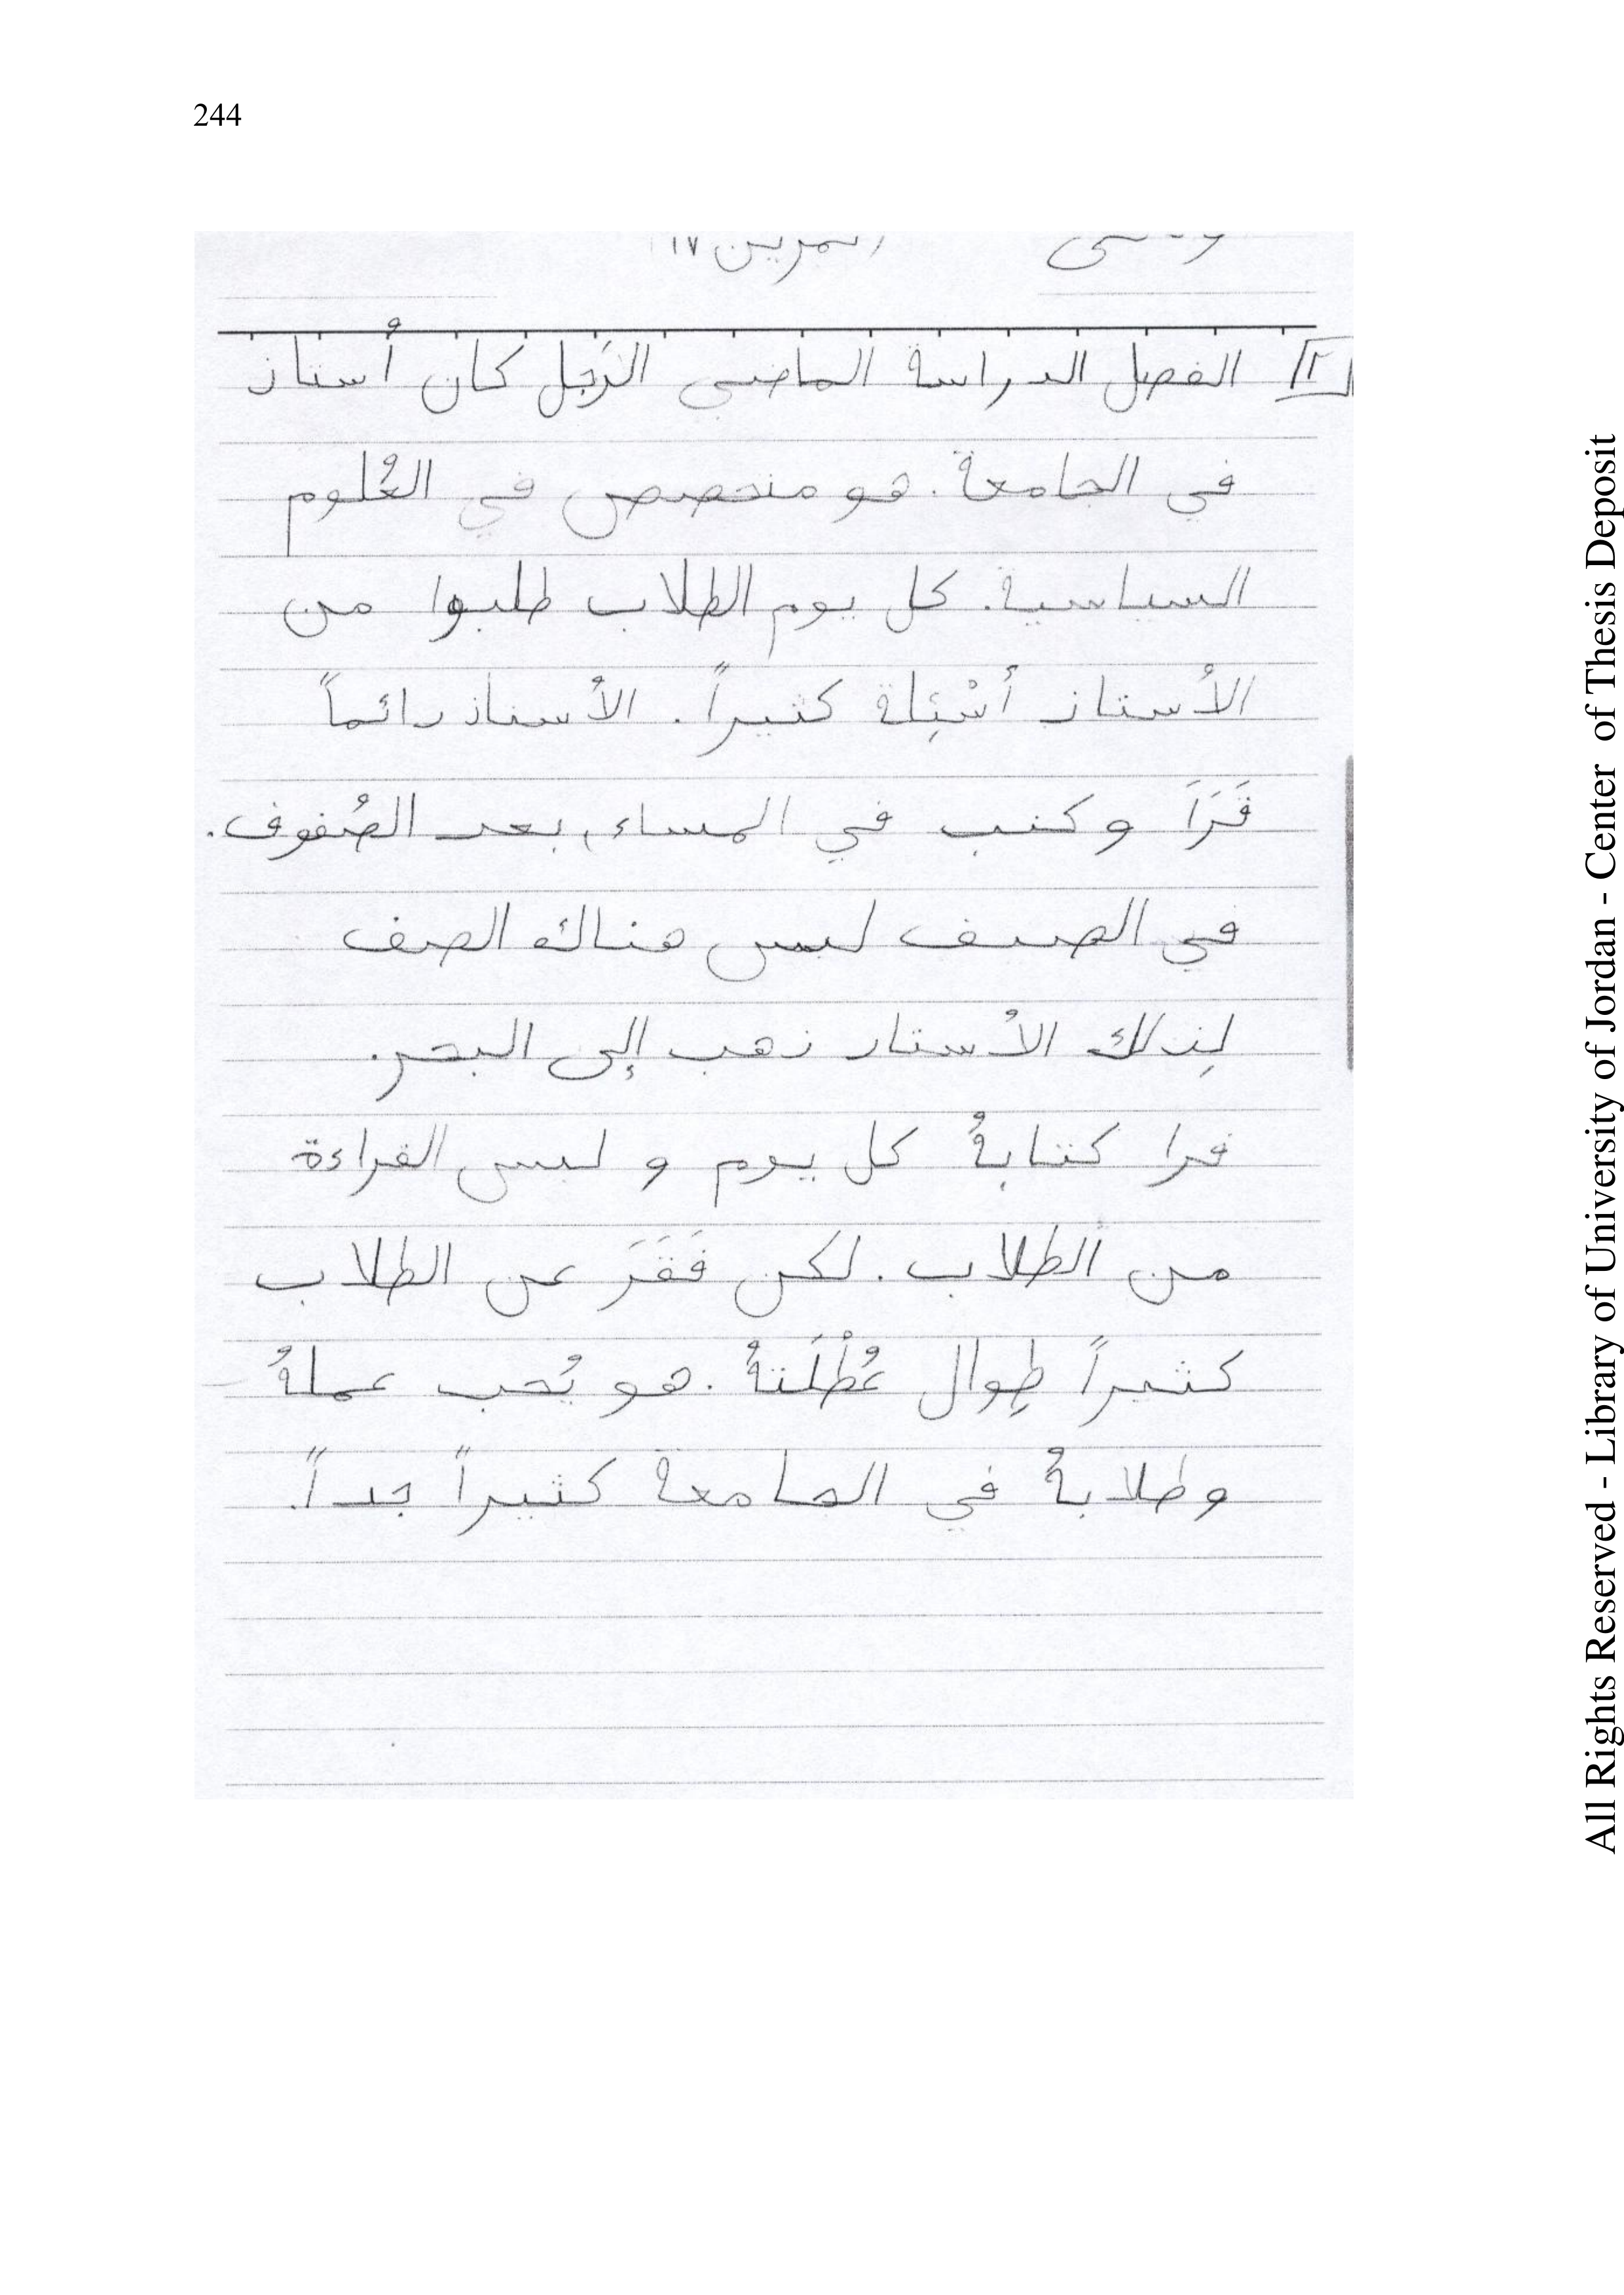 244
التمرين ١٧
٢ الفصل الدراسة الماضي الرَجل كان أُستاذ
في الجامعة. هو متخصص في العُلوم
السياسية. كل يوم الطلاب طلبوا من
الأُستاذ أسْئِلة كثيراً. الأُستاذ دائماً
قَرَأَ و كتب في المساء، بعد الصُفوف.
في الصيف ليس هناك الصف
لِذلك الأُستاذ ذهب إلى البحر.
قرا كتابهُ كل يوم و ليس القراءة
من الطلاب. لكن فَقَرَ عن الطلاب
كثيراً طِوال عُطْلَتهُ. هو يُحب عملهُ
وطلابهُ في الجامعة كثيراً جداً.
All Rights Reserved - Library of University of Jordan - Center of Thesis Deposit